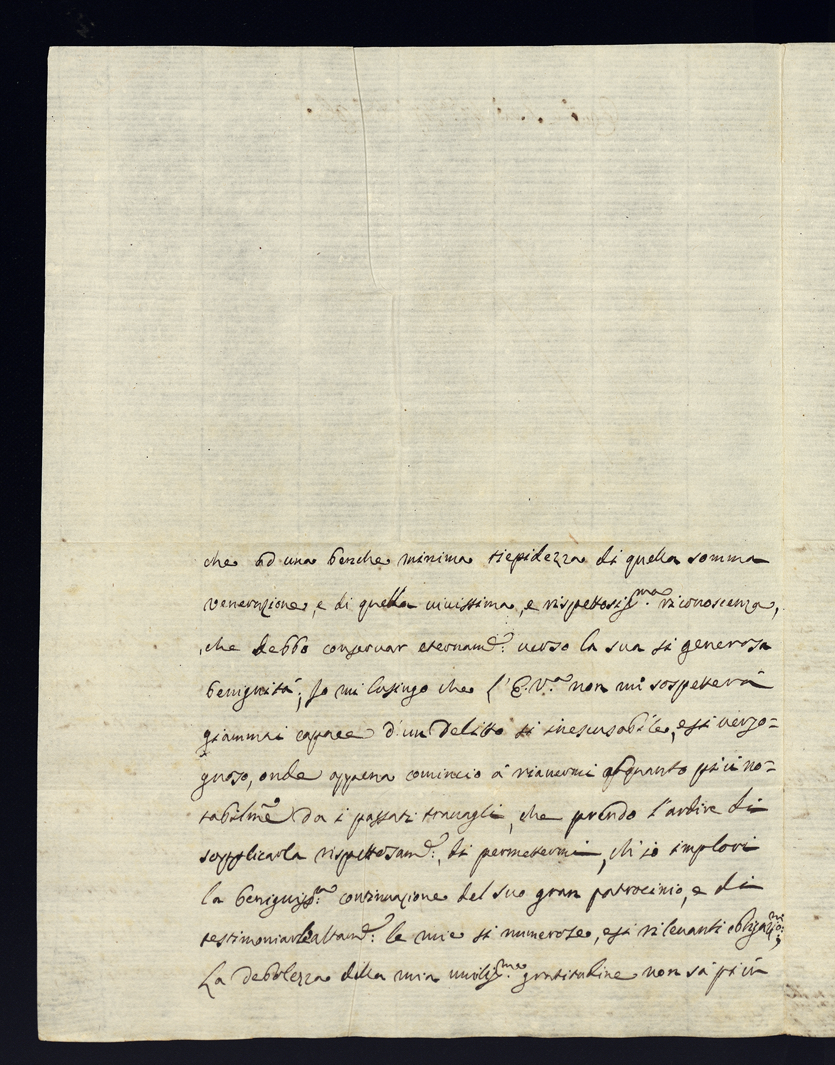 che ad una benche minima tiepidezza di quella somma
venerazione, e di quella vivissima, e rispettosiss.ma riconoscenza,
che debbo conservar eternam.e: verso la sua si generosa
benignità; Io mi lusingo che l'E. V.a non mi sospetterà
giammai capace d'un delitto si inescusabile, e si vergo=
gnoso, onde appena comincio à riavermi alquanto più no=
tabilm.e da i passati travagli, che prendo l'ardire di
supplicarla rispettosam.e: di permettermi, ch'io implori
la benigniss.ma continuazione del suo gran patrocinio, e di
testimoniarle altam.e: le mie si numerose, e si rilevanti obligazioni;
La debolezza della mia umiliss.ma gratitudine non sà più